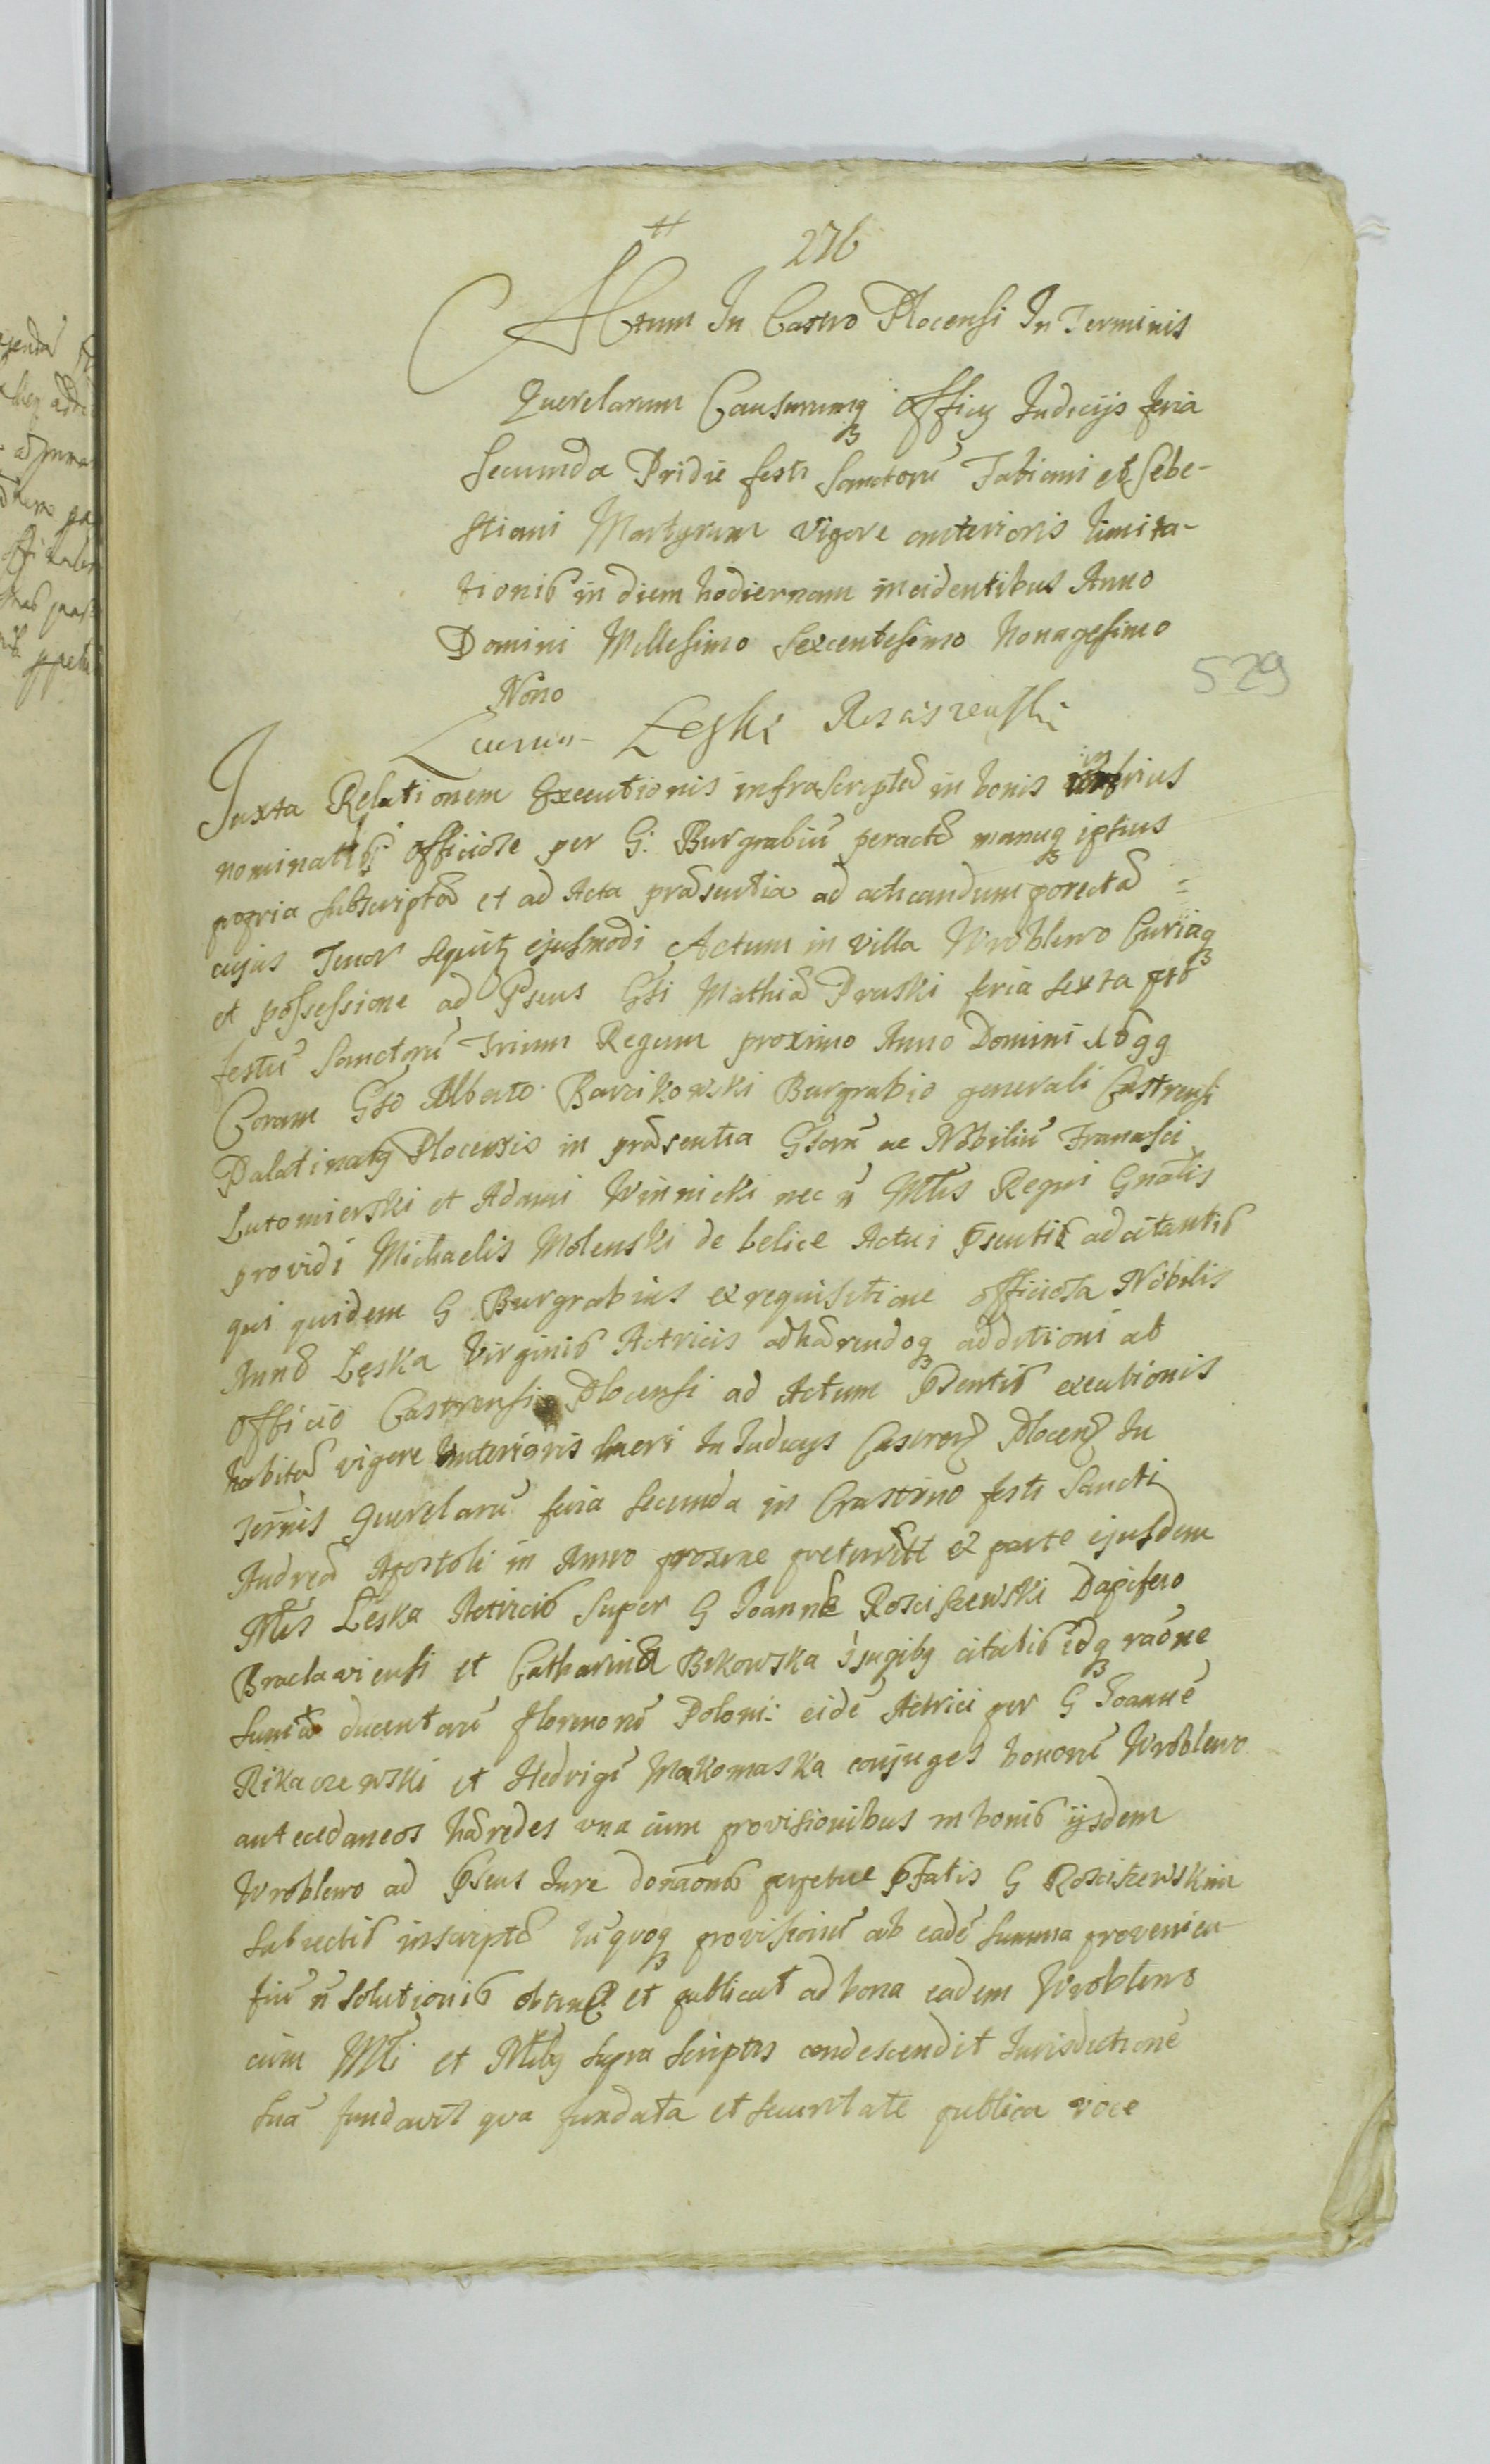 276
Actum In Castro Plocensi In Terminis
Querelarum Causarumq Officy Judicijs feria
Secunda Pridie festi Sanctorū Fabiani et Seba-
stiani Martyrum vigore anterioris limita-
tionis in diem hodiernam incidentibus Anno
Domini Millesimo Sexcentesimo Nonagesimo
Nono
529
Leski Rosciszewski
Juxta Relationem Executionis infrascriptæ in bonis inferius
nominatis officiose per G: Burgrabiū peractæ manuq ipsius
propria subscriptæ et ad Acta præsentia ad acticandum porectæ =
cujus Tenor sequitz ejusmodi Actum in villa Wroblewo Curiaq
et possessione ad Psens Gsi Mathiæ Pruski feria sexta pst
festū Sanctorū Trium Regum proximo Anno Domini 1699
Coram Gso Alberto Barcikowski Burgrabio generali Castrensi
Palatinatq Plocensis in præsentia Gsorū ac Nobiliū Francisci
Lutomierski et Adami Winnicki nec n̄ Mtis Regni Gnalis
providi Michaelis Molenski de belice Actui psentis adcitantis
qui quidem G Burgrabius ex requisitione officiosa Nobilis
Annæ Lęska Virginis Actricis adhærendoq additioni ab
officio Castrensi Plocensi ad Actum pdentis executionis
habitæ vigore anterioris lucri In Judicijs Castren Plocen In
Termis Querelarū feria secunda in Crastino festi Sancti
Andreæ Apostoli in Anno proxime preteriti ex parte ejusdem
Ntis Lęska Actricis super G Joanne Rosciszewski Dapifero
Braclaviensi et Catharina Bekowska jugibq citatis idq raōne
Sumæ ducentorū florenorū Poloni: eidē Actrici per G Joannē
Rikaczewski et Hedvigē Makomaska conjuges bonorū Wroblewo
antecedaneos hæredes una cum provisionibus in bonis ijsdem
Wroblewo ad Psens Jure donaōnis perpetue pfatis G Rosciszewskim
subiectis inscriptæ tūquoq provisionū ab eadē summa provenien-
tiū n̄ solutionis obtent et publicat ad bona eadem Wroblewo
cum Mli et Nlibq supra scriptis condescendit Jurisdictionē
suā fundavit qua fundata et securitate publica voce